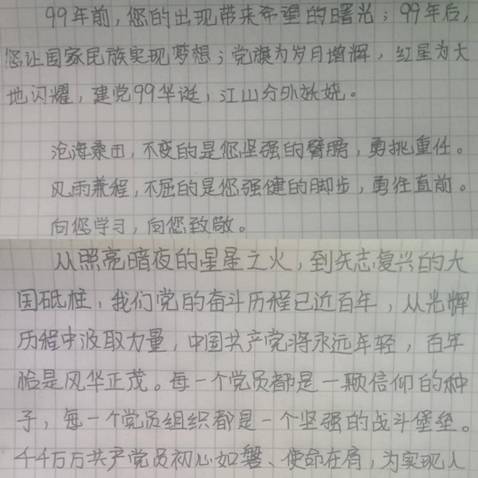 99年前,您的出现带来希望的曙光;99年后,
您让国家民族实现梦想;党旗为岁月增辉,红星为大
地闪耀,建党99华诞,江山分外妖娆。
沧海桑田,不变的是您坚强的臂膀,勇挑重任。
风雨兼程,不屈的是您强健的脚步,勇往直前。
向您学习,向您致敬。
从照亮暗夜的星星之火,到矢志复兴的大
国砥柱,我们党的奋斗历程已近百年,从光辉
历程中汲取力量,中国共产党将永远年轻,百年
恰是风华正茂。每一个党员都是一颗信仰的种
子,每一个党员组织都是一个坚强的战斗堡垒。
44万万共产党员初心如磐、使命在肩,为实现人